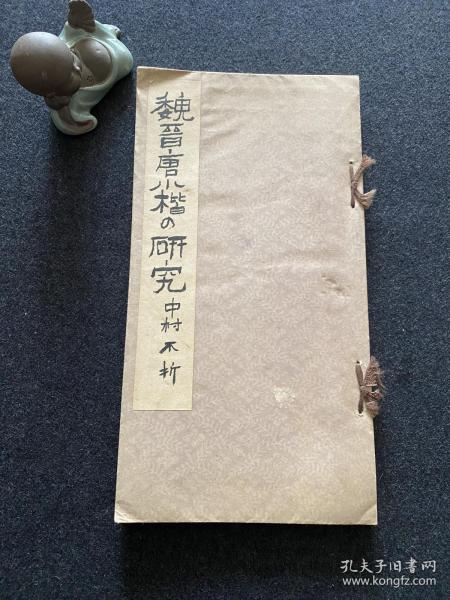 魏晋唐小楷の研究 中村不折
孔夫子旧书网
www.kongfz.com